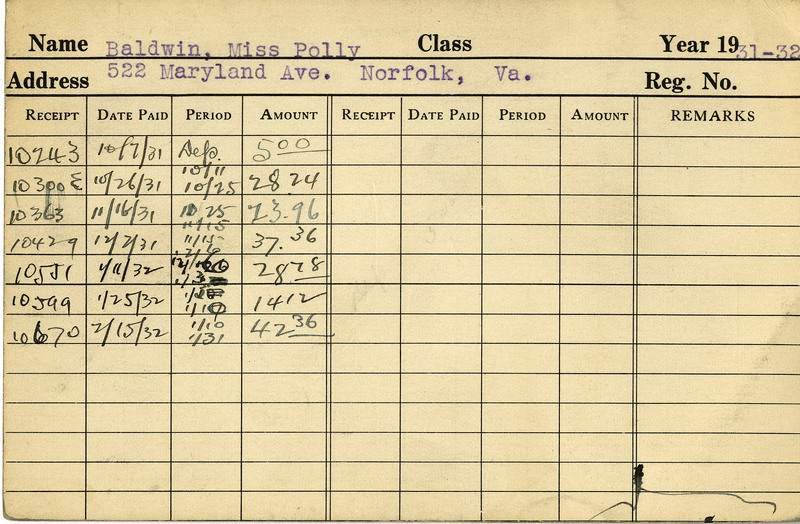 Name Baldwin, Miss Polly Class Year 1931-32
Address 522 Maryland Ave. Norfolk, Va. Reg. No.
RECEIPT DATE PAID PERIOD AMOUNT RECEIPT DATE PAID PERIOD AMOUNT REMARKS
10243 10/7/31 Dep. 5 00
10/11
10300 10/26/31 10/25 28 24
10363 11/16/31 10/25 23.96
11/15
10429 12/2/31 11/15 37.36
12/6
10551 1/11/32 28 28
10599 1/25/32 14 12
1/10
10670 2/15/32 1/10 42 36
1/31